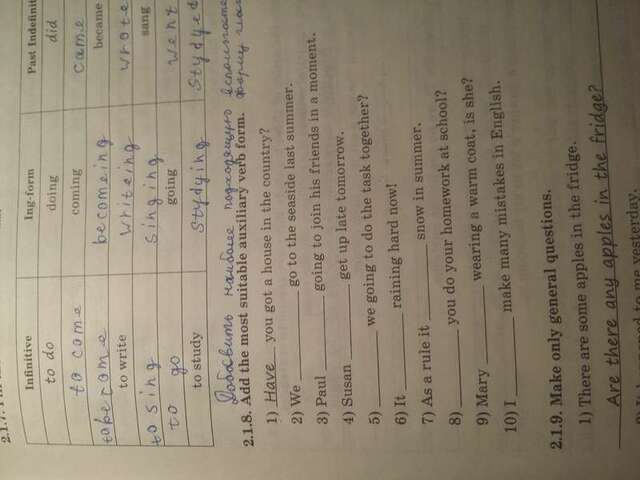 Infinitive Ing-form Past Indefinit
to do doing did
to come coming came
to become becomeing became
to write writeing wrote
to sing singing sang
to go going went
to study stydying stydyed
Добавить наиболее подходящую
2.1.8. Add the most suitable auxiliary verb form. форму
1) Have you got a house in the country?
2) We ______ go to the seaside last summer.
3) Paul ______ going to join his friends in a moment.
4) Susan ______ get up late tomorrow.
5) ______ we going to do the task together?
6) It ______ raining hard now!
7) As a rule it ______ snow in summer.
8) ______ you do your homework at school?
9) Mary ______ wearing a warm coat, is she?
10) I ______ make many mistakes in English.
2.1.9. Make only general questions.
1) There are some apples in the fridge.
Are there any apples in the fridge?
yesterday.